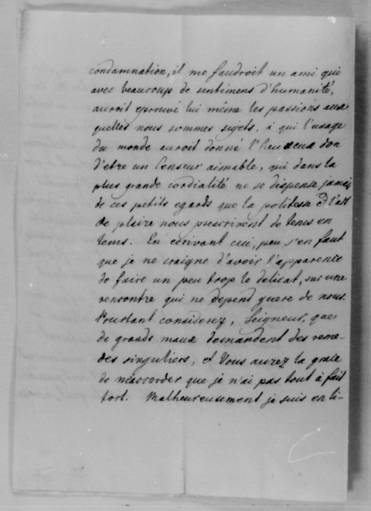 condamnation, il me faudroit un ami qui
avec beaucoup de sentimens d'humanité,
auroit éprouvé lui même les passions aux
quelles nous sommes sujets, à qui l'usage
du monde auroit donné l'heureux don
d'etre un Censeur aimable, qui dans la
plus grande cordialité ne se dispense jamais
de ces petits egards que la politesse & l'art
de plaire nous prescrivent de tems en
tems. En ecrivant ceci, peu s'en faut
que je ne craigne d'avoir l'apparence
de faire un peu trop le delicat, sur une
rencontre qui ne depend guere de nous.
Pourtant considerez, Seigneur, que
de grands maux demandent des reme-
des singuliers, et Vous aurez la grace
de m'accorder que je n'ai pas tout à fait
tort. Malheureusement je suis en ti-